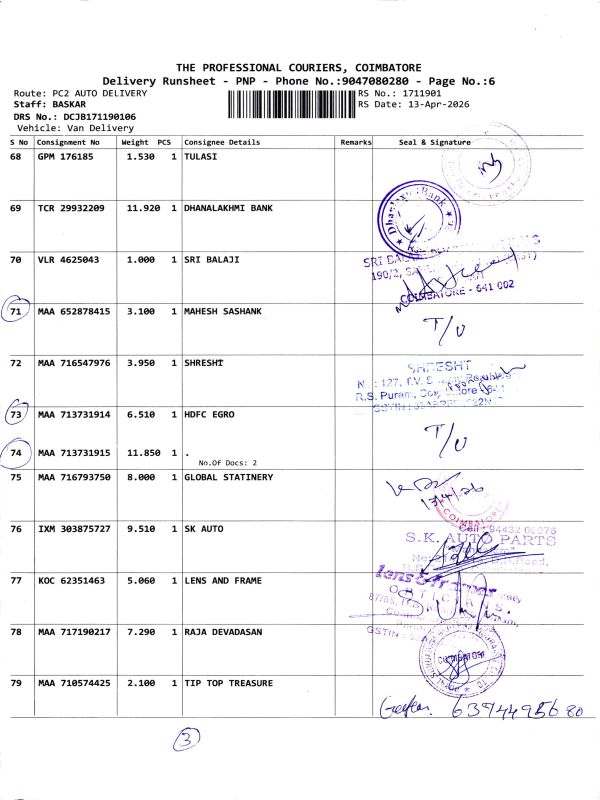 THE PROFESSIONAL COURIERS, COIMBATORE
Delivery Runsheet - PNP - Phone No.:9047080280 - Page No.:6
Route: PC2 AUTO DELIVERY RS No.: 1711901
Staff: BASKAR RS Date: 13-Apr-2026
DRS No.: DCJB171190106
Vehicle: Van Delivery
S No Consignment No Weight PCS Consignee Details Remarks Seal & Signature
68 GPM 176185 1.530 1 TULASI
69 TCR 29932209 11.920 1 DHANALAKHMI BANK
Bank
70 VLR 4625043 1.000 1 SRI BALAJI
SRI
190/2,
COIMBATORE - 641 002
71 MAA 652878415 3.100 1 MAHESH SASHANK
T/U
72 MAA 716547976 3.950 1 SHRESHT
SHRESHT
127, T.V.
R.S. Puram,
73 MAA 713731914 6.510 1 HDFC EGRO
74 MAA 713731915 11.850 1 .
T/U
No.Of Docs: 2
75 MAA 716793750 8.000 1 GLOBAL STATINERY
13/4/26
COIMBATORE
76 IXM 303875727 9.510 1 SK AUTO
Cell : 94432 09076
S.K. AUTO PARTS
77 KOC 62351463 5.060 1 LENS AND FRAME
Lens & Frames
OPTICALS
GSTIN
78 MAA 717190217 7.290 1 RAJA DEVADASAN
COIMBATORE
79 MAA 710574425 2.100 1 TIP TOP TREASURE
3